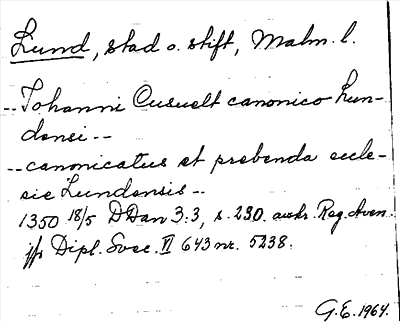 Lund, stad o. stift, Malm. l.
-- Johanni Ousuelt canonico Lun-
densi --
-- canonicatus et prebenda eccle-
sie Lundensis --
1350 18/5 DDan 3:3, s. 230. avskr. Reg. Aven.
jfr Dipl. Svec. VI 643 nr. 5238.
G.E. 1964.